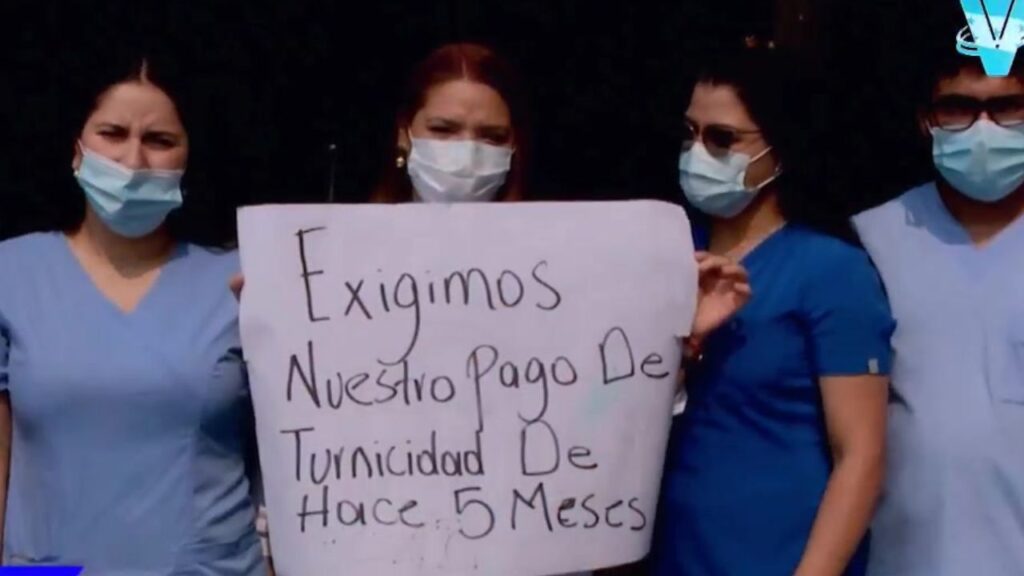 V
Exigimos
Nuestro Pago De
Turnicidad De
Hace 5 Meses